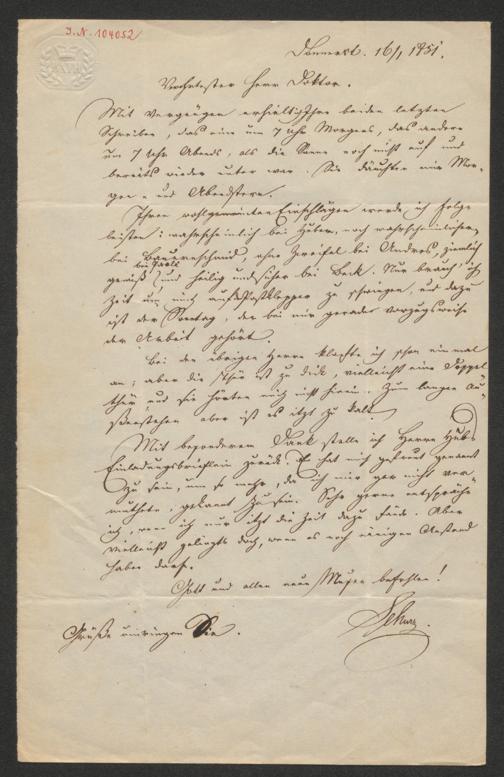 I.N. 104052
Donnerst. 16/1 1851.
Verehrtester Herr Doktor.
Mit Vergnügen erhielt ich Ihre beiden letzten
Schreiben, das eine um 7 Uhr Morgens, das andere
um 7 Uhr Abends, als die Sonne noch nicht auf und
bereits wieder unter war. Sie däuchten mir Mor-
gen- und Abendstern.
Ihren wohlgemeinten Einschlägen werde ich Folge
leisten: wahrscheinlich bei Huber, noch wahrscheinlicher
bei Bauernschmid, ohne Zweifel bei Andres, ziemlich
gewiß bei und heilig und sicher bei Beck. Nur brauch' ich
Zeit um mich aufs zu schwingen, und dazu
ist der Sonntag, der bei mir gerade vorzugsweise
der Arbeit gehört.
Bei den übrigen Herrn klopfte ich schon einmal
an; aber die Thür ist zu dick, vielleicht eine Doppel-
thür, und sie hörten mich nicht herein. Zum langen Au-
ßenstehen aber ist es itzt zu kalt.
Mit besonderem Dank stelle ich Herrn
Einladungsbrieflein zurück. Es hat mich gefreut genannt
zu sein, um so mehr, da ich mir gar nicht ver-
muthete, gekannt zu sein. Sehr gerne entspräche
ich, wenn ich nur itzt die Zeit dazu fände. Aber
vielleicht gelingts doch, wenn es noch einigen Anstand
haben darf.
Gott und allen neun Musen befohlen!
Grüße Sie.
Schurz.